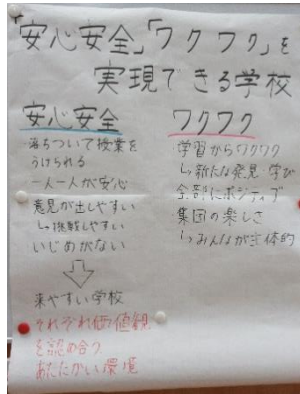 「安心安全」「ワクワク」を
実現できる学校
安心安全
落ちついて授業を
うけられる
一人一人が安心
意見が出しやすい
↳挑戦しやすい
いじめがない
来やすい学校
それぞれ価値観
を認め合う
あたたかい環境
ワクワク
・学習からワクワク
↳新たな発見・学び
全部にポジティブ
集団の楽しさ
↳みんなが主体的